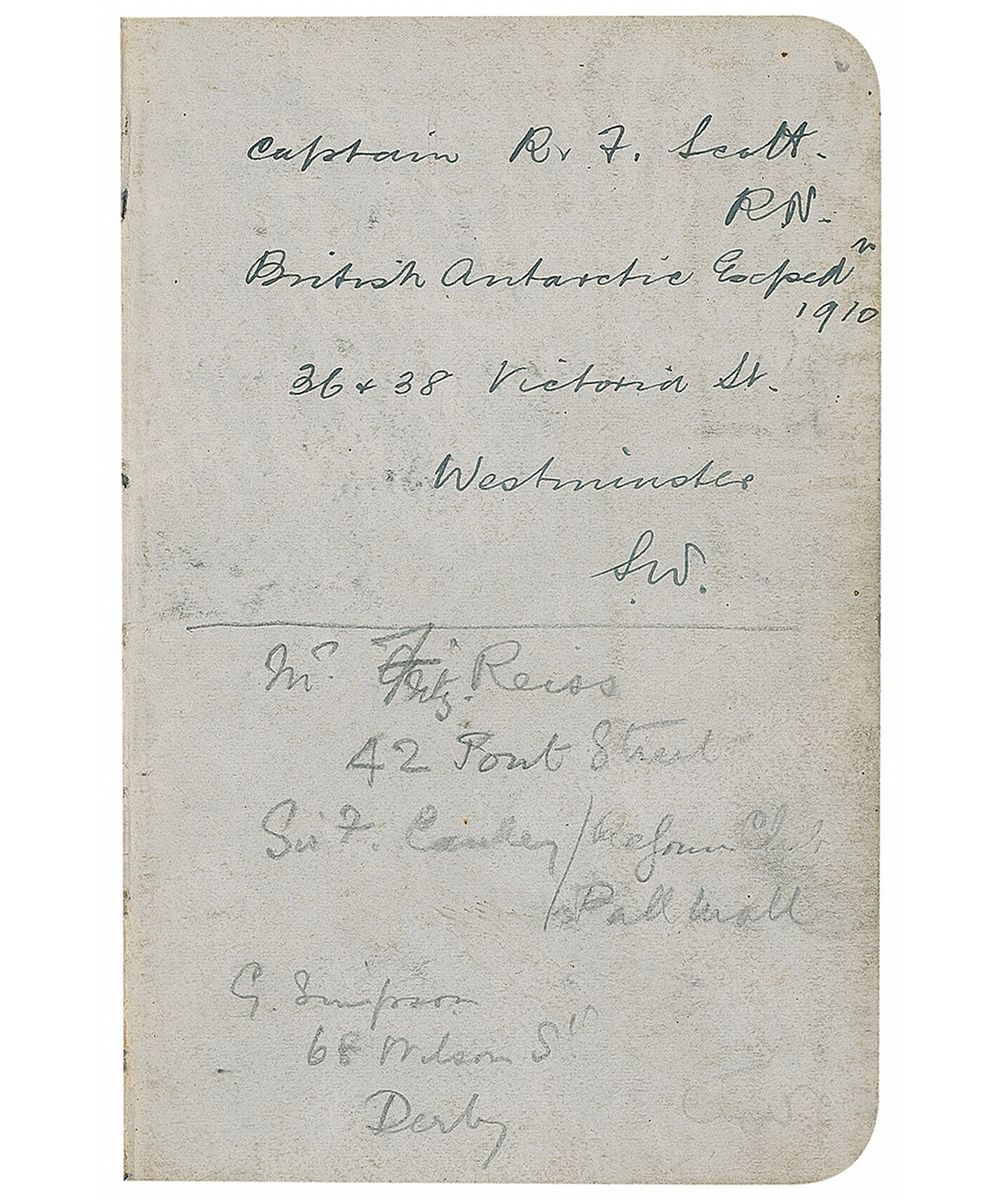 Captain R. F. Scott.
RN.
British Antarctic Expedⁿ
1910
36 & 38 Victoria St.
Westminster
S.W.
Mr. Fritz. Reiss
42 Pont Street
Sir F. Cawley / Reform Club
/ Pall Mall
G. Simpson
68 Wilson St.
Derby